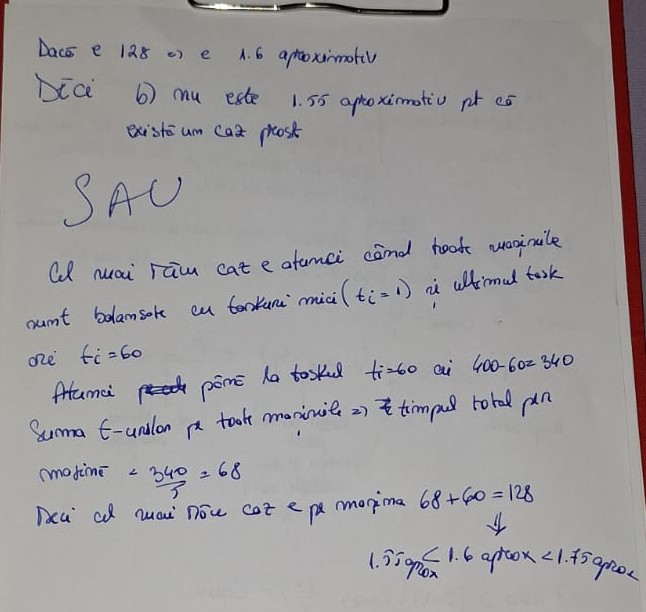 Dacă e 128 => e 1.6 aproximativ
Deci b) nu este 1.55 aproximativ pt că
există un caz prost
SAU
Cel mai rău caz e atunci când toate mașinile
sunt balansate cu taskuri mici (ti=1) și ultimul task
are ti=60
Atunci până la taskul ti=60 ai 400-60=340
Suma t-urilor pe toate mașinile => timpul total per
mașină < 340/5 = 68
Deci cel mai rău caz e pe mașina 68+60=128
⇓
1.55aprox < 1.6 aprox < 1.75 aprox